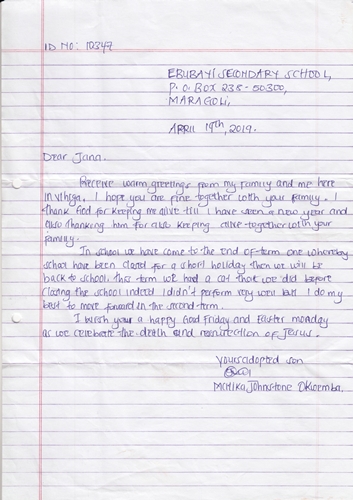 ID NO: 10347
EBUBAYI SECONDARY SCHOOL,
P. O. BOX 238 - 50300,
MARAGOLI,
APRIL 19th, 2019.
Dear Jana,
Receive warm greetings from my family and me here
in vihiga. I hope you are fine together with your family. I
thank God for keeping me alive till I have seen a new year and
also thanking him for also keeping alive together with your
family.
In school we have come to the end of term one whereby
school have been closed for a short holiday then we will be
back to school. This term we had a cat that we did before
closing the school indeed I didn't perform very well but I do my
best to move forward in the second term.
I wish your a happy Good Friday and Easter monday
as we celebrate the death and resurrection of Jesus.
yours adopted son
Johnstone